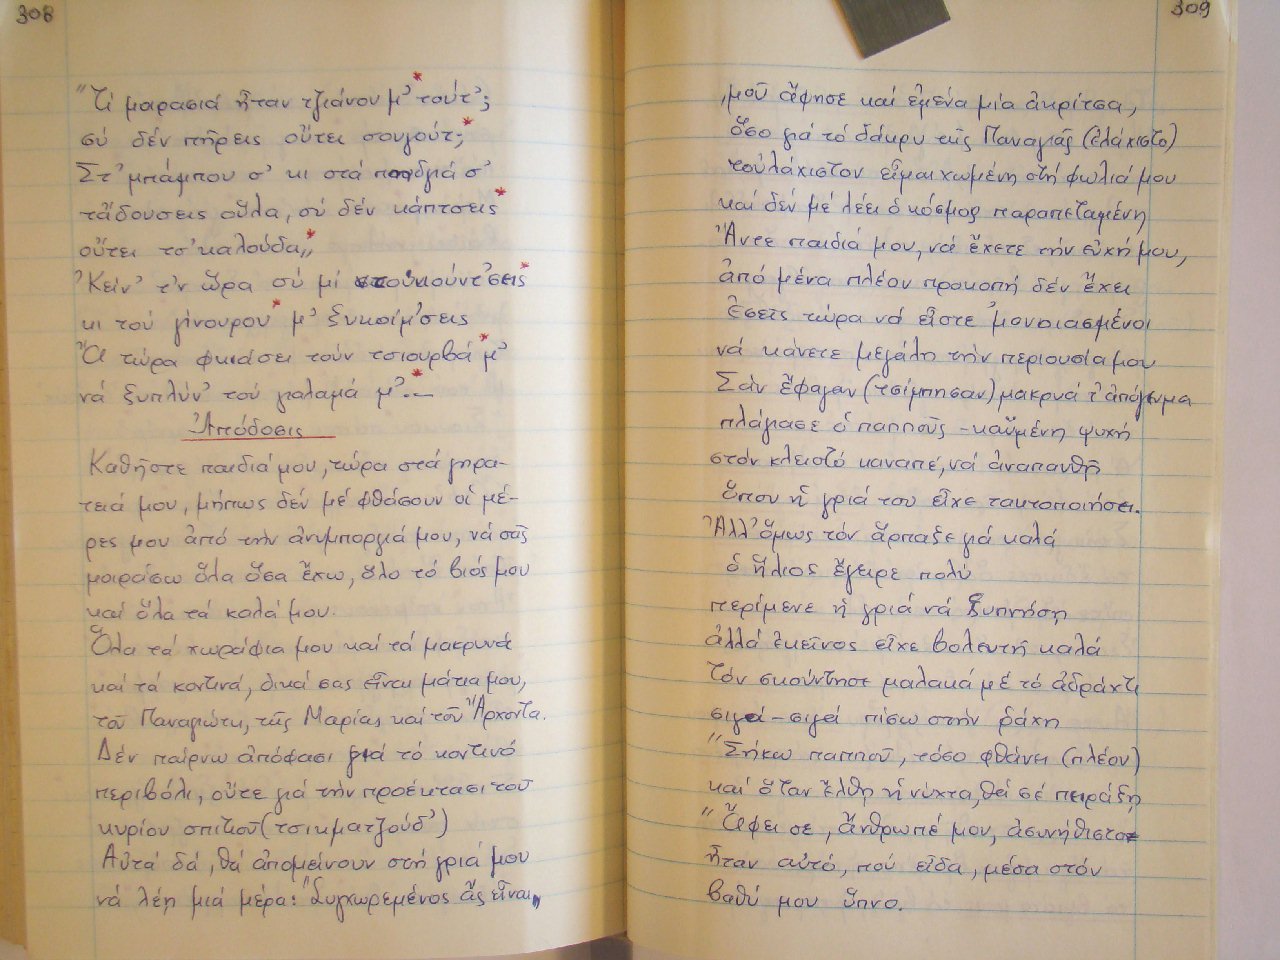 308
"Τί μαρασιά ἦταν τζιάνουμ' τούτ';
σύ δέν πῆρεις οὔτει σουγούτ;
Στ' μπάμπου σ' κι στά πιδγιά σ'
τἄδουσεις οὗλα, σύ δέν κάπτσεις
οὔτει τσ' καλούδα"
Κείν' τ'ν ὥρα σύ μί σκούντ'σεις
κι τού γίνουρου μ' ξυκοίμ'σεις
Ἄ τώρα φκιάσει τούν τσιουρβά μ'
νά ξυπλύν' τού γαλαμά μ'.–
Ἀπόδοσις
Καθῆστε παιδιά μου, τώρα στά γηρα-
τειά μου, μήπως δέν μέ φθάσουν οἱ μέ-
ρες μου ἀπό τήν ἀνημποργιά μου, νά σᾶς
μοιράσω ὅλα ὅσα ἔχω, ὅλο τό βιός μου
καί ὅλα τά καλά μου.
Ὅλα τά χωράφια μου καί τά μακρυνά
καί τά κοντινά, δικά σας εἶναι μάτια μου,
τοῦ Παναγιώτη, τῆς Μαρίας καί τοῦ Ἄρχοντα.
Δέν παίρνω ἀπόφασι γιά τό κοντινό
περιβόλι, οὔτε γιά τήν προέκτασι τοῦ
κυρίου σπιτιοῦ (τσικματζούδ')
Αὐτά δά, θά ἀπομείνουν στή γριά μου
νά λέη μιά μέρα: "Συγχωρεμένος ἄς εἶναι"
309
,μοῦ ἄφησε καί ἐμένα μία ἀκρίτσα,
ὅσο γιά τό δάκρυ τῆς Παναγιᾶς (ἐλάχιστο)
τοὐλάχιστον εἶμαι χωμένη στή φωλιά μου
καί δέν μέ λέει ὁ κόσμος παραπεταμένη
Ἄντε παιδιά μου, νά ἔχετε τήν εὐχή μου,
ἀπό μένα πλέον προκοπή δέν ἔχει
ἐσεῖς τώρα νά εἶστε μονοιασμένοι
νά κάνετε μεγάλη τήν περιουσία μου
Σάν ἔφαγαν (τσίμπησαν) μακρυά τ' ἀπόγευμα
πλάγιασε ὁ παπποῦς – καϋμένη ψυχή
στόν κλειστό καναπέ, νά ἀναπαυθῆ
ὅπου ἡ γριά του εἶχε τακτοποιήσει.
Ἀλλ' ὅμως τόν ἅρπαξε γιά καλά
ὁ ἥλιος ἔγειρε πολύ
περίμενε ἡ γριά νά ξυπνήση
ἀλλά ἐκεῖνος εἶχε βολευτῆ καλά
Τόν σκούντησε μαλακά μέ τό ἀδράχτι
σιγά – σιγά πίσω στήν ράχη
"Σήκω παπποῦ, τόσο φθάνει (πλέον)
καί ὅταν ἔλθη ἡ νύχτα, θά σέ πειράξη
"Ἄφει σε, ἄνθρωπέ μου, ἀσυνήθιστο
ἦταν αὐτό, πού εἶδα, μέσα στόν
βαθύ μου ὕπνο.